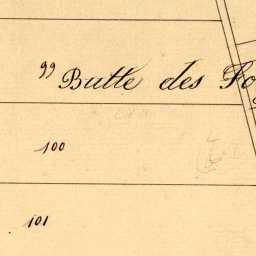 99 Butte des
100
101